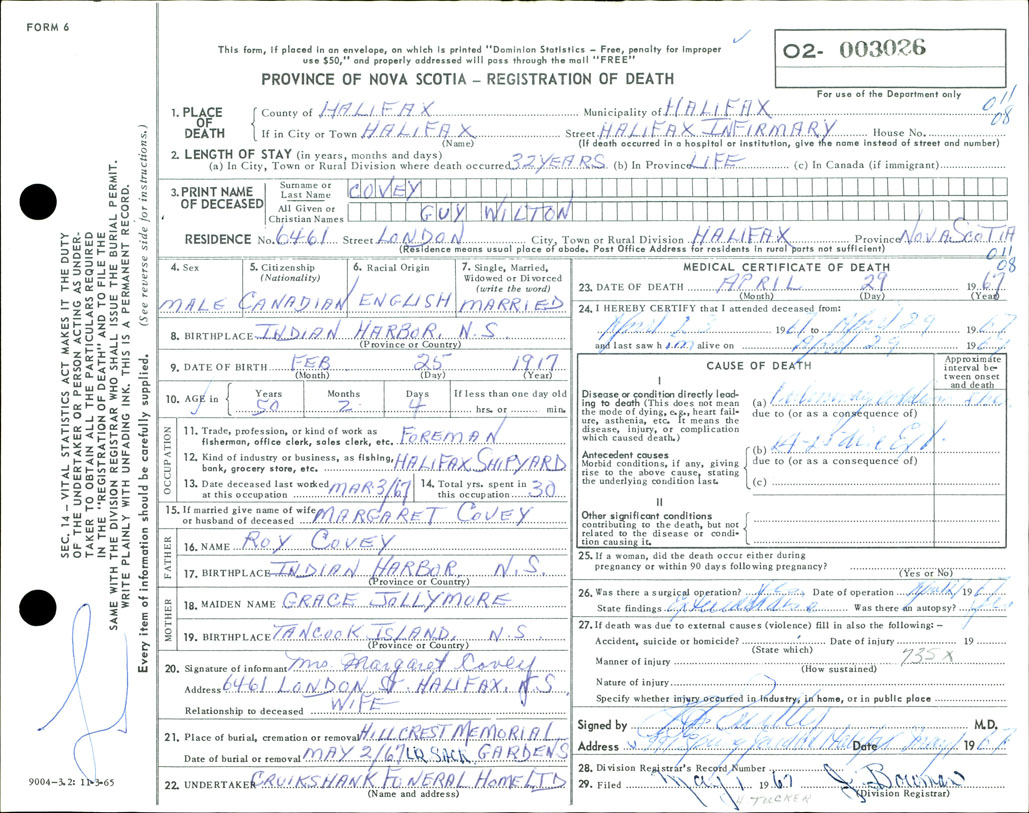 FORM 6
This form, if placed in an envelope, on which is printed "Dominion Statistics – Free, penalty for improper
use $50," and properly addressed will pass through the mail "FREE"
O2- 003026
PROVINCE OF NOVA SCOTIA – REGISTRATION OF DEATH
For use of the Department only
011
08
1. PLACE OF DEATH
County of HALIFAX Municipality of HALIFAX
If in City or Town HALIFAX Street HALIFAX INFIRMARY House No.
(Name) (If death occurred in a hospital or institution, give the name instead of street and number)
2. LENGTH OF STAY (in years, months and days)
(a) In City, Town or Rural Division where death occurred 32 YEARS (b) In Province LIFE (c) In Canada (if immigrant)
3. PRINT NAME OF DECEASED
Surname or Last Name COVEY
All Given or Christian Names GUY WILTON
RESIDENCE No. 6461 Street LONDON City, Town or Rural Division HALIFAX Province NOVA SCOTIA
(Residence means usual place of abode. Post Office Address for residents in rural parts not sufficient)
011
08
4. Sex
MALE
5. Citizenship
(Nationality)
CANADIAN
6. Racial Origin
ENGLISH
7. Single, Married,
Widowed or Divorced
(write the word)
MARRIED
8. BIRTHPLACE INDIAN HARBOR, N.S
(Province or Country)
9. DATE OF BIRTH FEB 25 1917
(Month) (Day) (Year)
10. AGE in Years Months Days If less than one day old
50 2 4 hrs. or min.
OCCUPATION
11. Trade, profession, or kind of work as
fisherman, office clerk, sales clerk, etc. FOREMAN
12. Kind of industry or business, as fishing,
bank, grocery store, etc. HALIFAX SHIPYARD
13. Date deceased last worked
at this occupation MAR 3/67
14. Total yrs. spent in
this occupation 30
15. If married give name of wife
or husband of deceased MARGARET COVEY
FATHER
16. NAME ROY COVEY
17. BIRTHPLACE INDIAN HARBOR N.S.
(Province or Country)
MOTHER
18. MAIDEN NAME GRACE JOLLYMORE
19. BIRTHPLACE TANCOOK ISLAND, N.S
(Province or Country)
20. Signature of informant Mrs. Margaret Covey
Address 6461 LONDON St. HALIFAX, N.S
Relationship to deceased WIFE
21. Place of burial, cremation or removal HILLCREST MEMORIAL
GARDENS
Date of burial or removal MAY 2/67 LR SACK
22. UNDERTAKER CRUIKSHANK FUNERAL HOME LTD
(Name and address)
MEDICAL CERTIFICATE OF DEATH
23. DATE OF DEATH APRIL 29 1967
(Month) (Day) (Year)
24. I HEREBY CERTIFY that I attended deceased from:
April 23 1967 to April 29 1967
and last saw him alive on April 29 1967
CAUSE OF DEATH
Approximate
interval be-
tween onset
and death
I
Disease or condition directly lead-
ing to death (This does not mean
the mode of dying, e.g., heart fail-
ure, asthenia, etc. It means the
disease, injury, or complication
which caused death.)
(a)
due to (or as a consequence of)
Antecedent causes
Morbid conditions, if any, giving
rise to the above cause, stating
the underlying condition last.
(b)
due to (or as a consequence of)
(c)
II
Other significant conditions
contributing to the death, but not
related to the disease or condi-
tion causing it.
25. If a woman, did the death occur either during
pregnancy or within 90 days following pregnancy?
(Yes or No)
26. Was there a surgical operation? Yes Date of operation 1967
State findings Was there an autopsy?
27. If death was due to external causes (violence) fill in also the following: –
Accident, suicide or homicide? Date of injury 19
(State which)
735X
Manner of injury
(How sustained)
Nature of injury
Specify whether injury occurred in industry, in home, or in public place
Signed by M.D.
Address Date 1967
28. Division Registrar's Record Number
29. Filed May 1 1967 J. Bowman
(Division Registrar)
H TUCKER
SEC. 14 – VITAL STATISTICS ACT MAKES IT THE DUTY
OF THE UNDERTAKER OR PERSON ACTING AS UNDER-
TAKER TO OBTAIN ALL THE PARTICULARS REQUIRED
IN THE "REGISTRATION OF DEATH" AND TO FILE THE
SAME WITH THE DIVISION REGISTRAR WHO SHALL ISSUE THE BURIAL PERMIT.
WRITE PLAINLY WITH UNFADING INK. THIS IS A PERMANENT RECORD.
Every item of information should be carefully supplied. (See reverse side for instructions.)
9004-3.2: 11-3-65